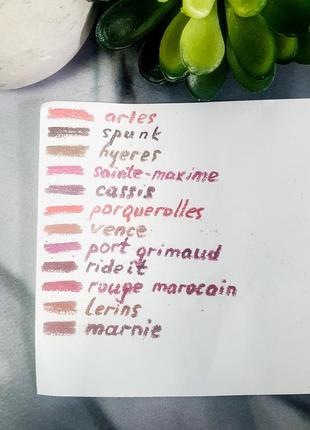 arles
spunk
hyeres
sainte-maxime
cassis
porquerolles
vence
port grimaud
rideit
rouge marocain
lerins
marnie